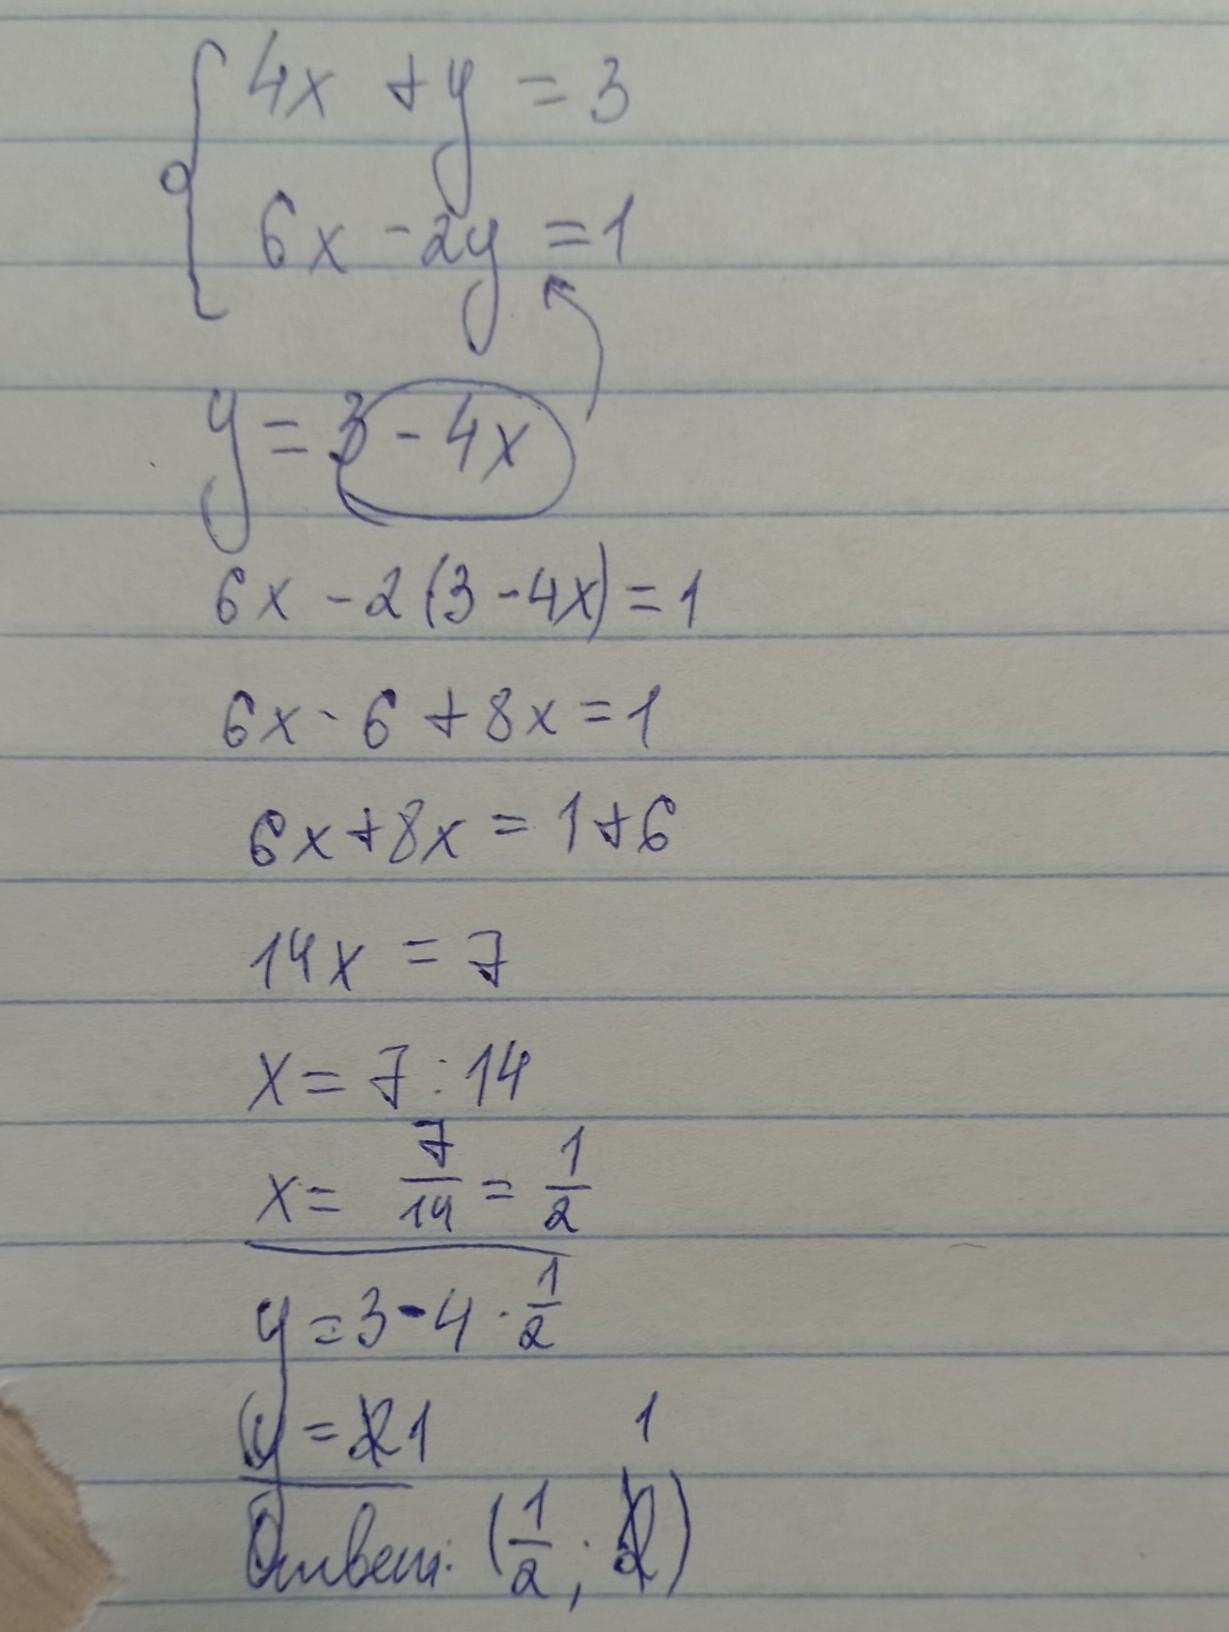 4x + y = 3
6x - 2y = 1
y = 3 - 4x
6x - 2(3 - 4x) = 1
6x - 6 + 8x = 1
6x + 8x = 1 + 6
14x = 7
x = 7 : 14
x = 7/14 = 1/2
y = 3 - 4 · 1/2
y = 1
Ответ: (1/2; 1)